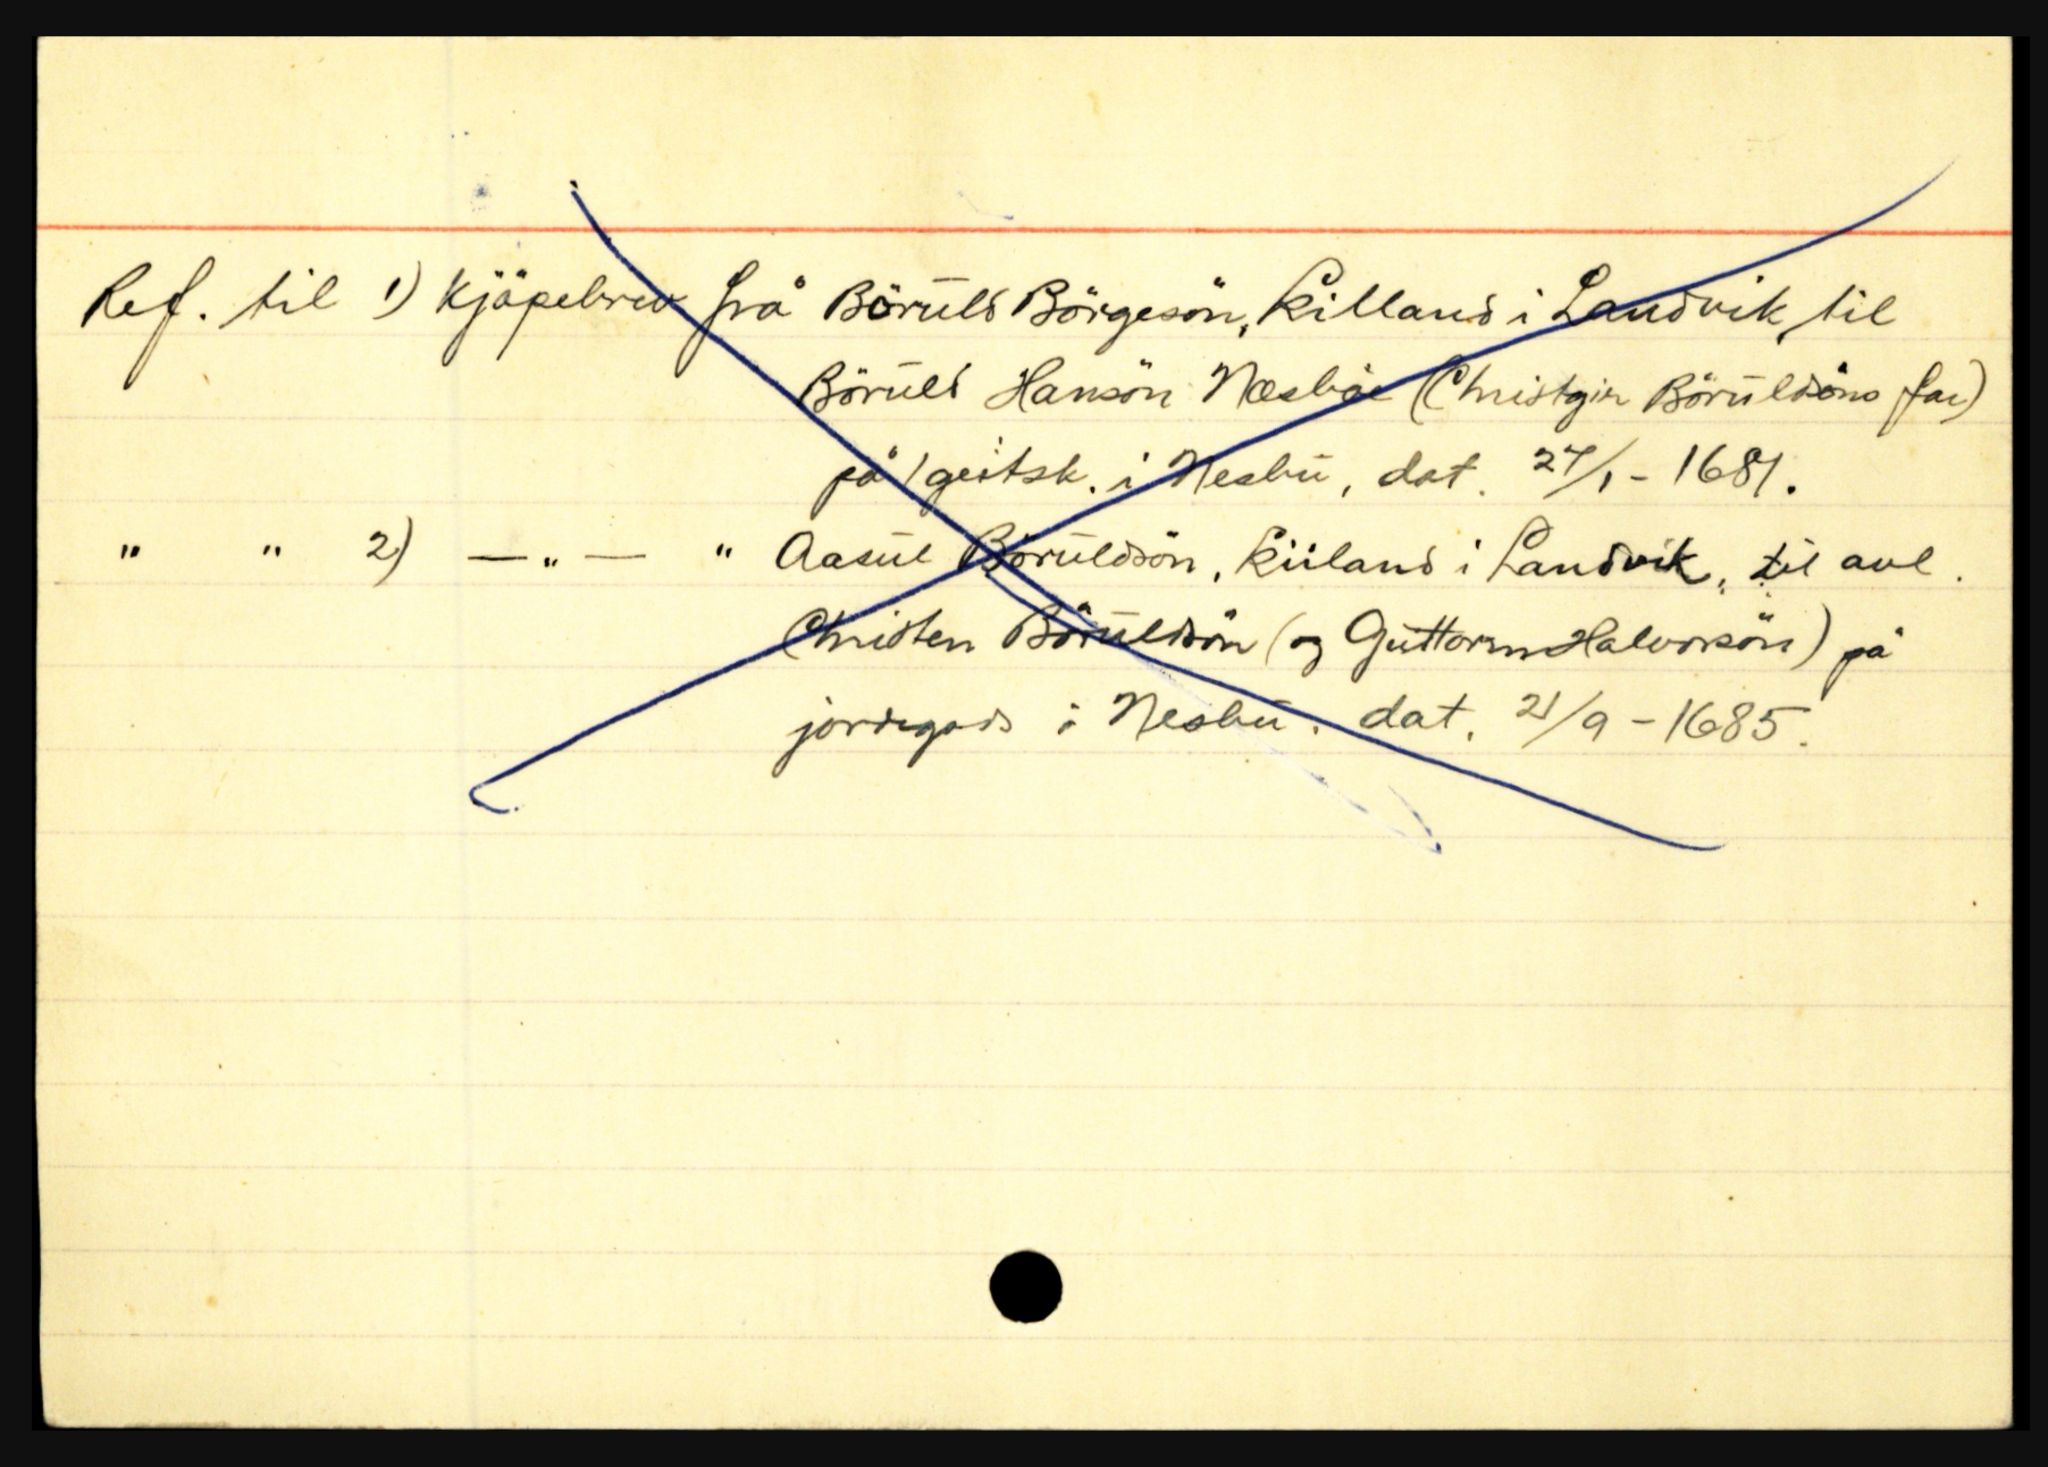 Ref. til 1) Kjöpebrev frå Böruld Börgesön, Killand i Landvik, til
Böruld Hansön Næsböe (Christgin Böruldsöns far)
på 1 geitsk. i Nesbu, dat. 24/1 - 1681.
" " 2) — " — " Aasul Böruldsön, Kiiland i Landvik, til avl.
Christen Böruldsön (og Guttorm Halvorsön) på
jordegods i Nesbu. dat. 21/9 - 1685.